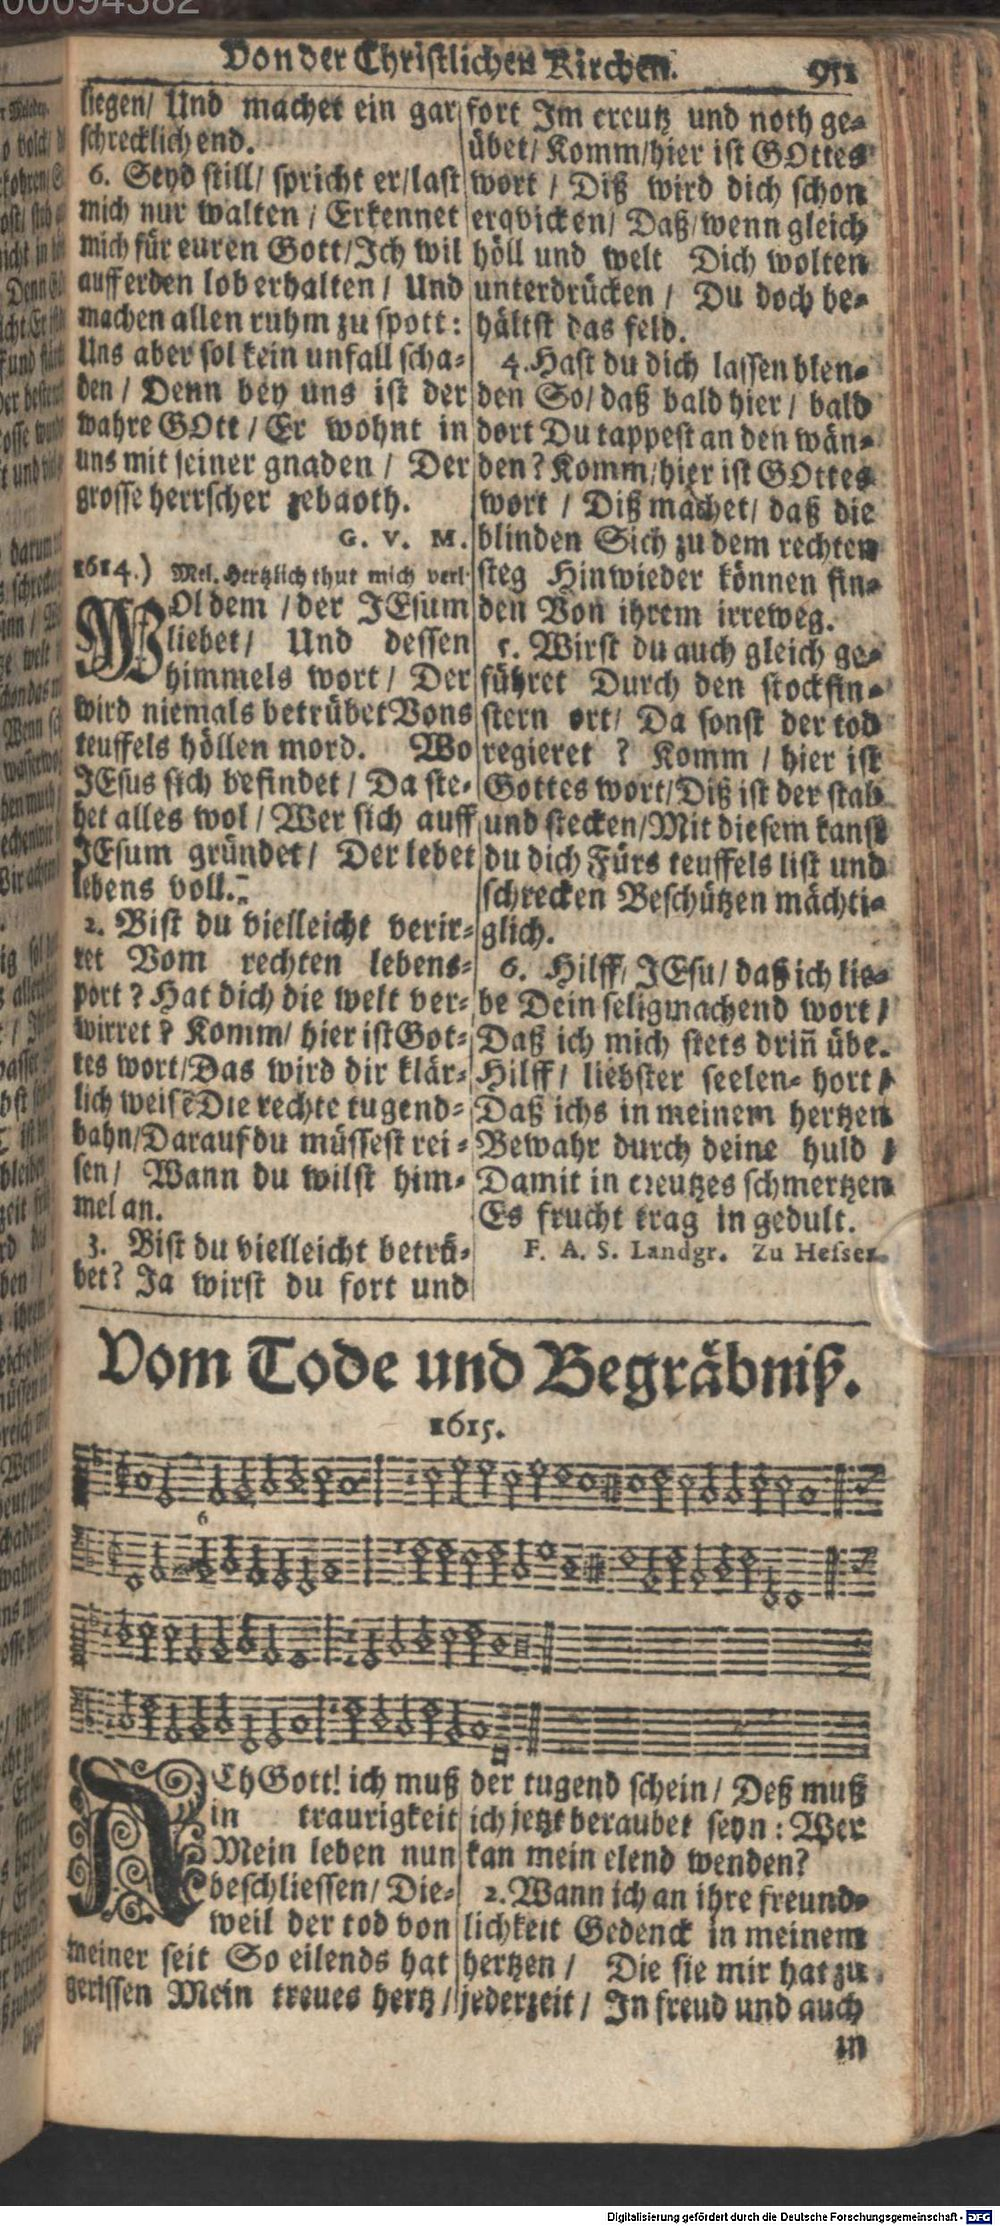 Von der Christlichen Kirchen. 951
liegen/ Und machet ein gar
schrecklich end.
6. Seyd still/ spricht er/last
mich nur walten / Erkennet
mich für euren Gott/Ich wil
auff erden lob erhalten / Und
machen allen ruhm zu spott:
Uns aber sol kein unfall scha-
den / Denn bey uns ist der
wahre GOtt / Er wohnt in
uns mit seiner gnaden / Der
grosse herrscher zebaoth.
G. V. M.
1614.) Mel. Hertzlich thut mich verl.
WOl dem / der JEsum
liebet/ Und dessen
himmels wort / Der
wird niemals betrübet Vons
teuffels höllen mord. Wo
JEsus sich befindet / Da ste-
het alles wol / Wer sich auff
JEsum gründet / Der lebet
lebens voll.
2. Bist du vielleicht verir-
ret Vom rechten lebens-
port ? Hat dich die welt ver-
wirret ? Komm/ hier ist Got-
tes wort/Das wird dir klär-
lich weisē Die rechte tugend-
bahn/Darauf du müssest rei-
sen/ Wann du wilst him-
mel an.
3. Bist du vielleicht betrü-
bet? Ja wirst du fort und
fort Im creutz und noth ge-
übet/ Komm/hier ist GOttes
wort / Diß wird dich schon
erqvicken/ Daß/wenn gleich
höll und welt Dich wolten
unterdrücken / Du doch be-
hältst das feld.
4. Hast du dich lassen blen-
den So/ daß bald hier / bald
dort Du tappest an den wän-
den? Komm/hier ist GOttes
wort / Diß machet/ daß die
blinden Sich zu dem rechten
steg Hinwieder können fin-
den Von ihrem irreweg.
5. Wirst du auch gleich ge-
führet Durch den stockfin-
stern ort/ Da sonst der tod
regieret ? Komm / hier ist
Gottes wort/Diß ist der stab
und stecken/Mit diesem kanst
du dich Fürs teuffels list und
schrecken Beschützen mächti-
glich.
6. Hilff/ JEsu/ daß ich lie-
be Dein seligmachend wort /
Daß ich mich stets driñ übe.
Hilff/ liebster seelen-hort /
Daß ichs in meinem hertzen
Bewahr durch deine huld /
Damit in creutzes schmertzen
Es frucht trag in gedult.
F. A. S. Landgr. Zu Hessen.
Vom Tode und Begräbniß.
1615.
6
ACh Gott! ich muß
in traurigkeit
Mein leben nun
beschliessen/ Die-
weil der tod von
meiner seit So eilends hat
gerissen Mein treues hertz /
der tugend schein / Deß muß
ich jetzt beraubet seyn : Wer
kan mein elend wenden?
2. Wann ich an ihre freund-
lichkeit Gedenck in meinem
hertzen / Die sie mir hat zu
jederzeit / In freud und auch
in
Digitalisierung gefördert durch die Deutsche Forschungsgemeinschaft - DFG